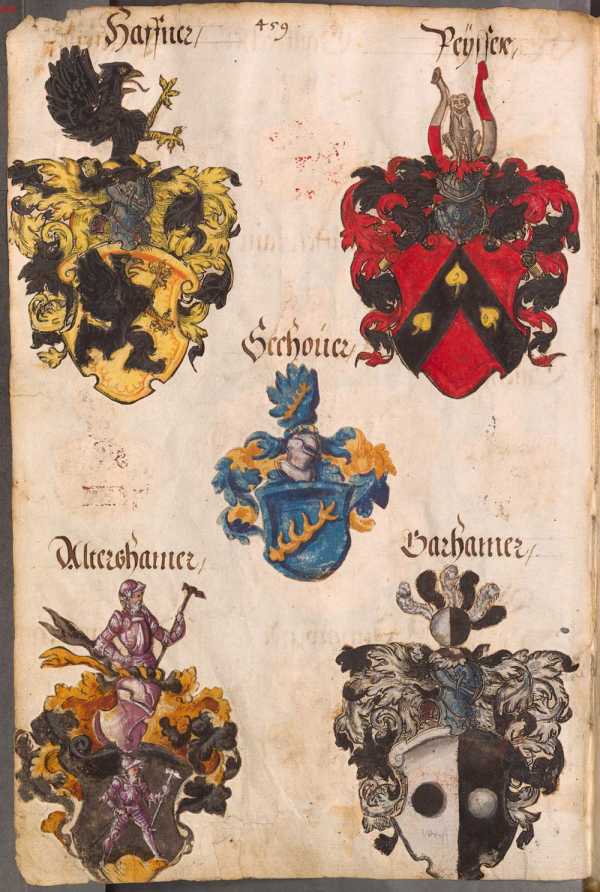 Haffner
459
Peÿsser
Seehoúer
Altershamer
Garhamer